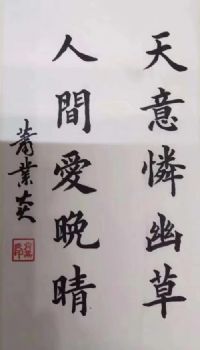 天意憐幽草
人間愛晚晴
蕭業炎